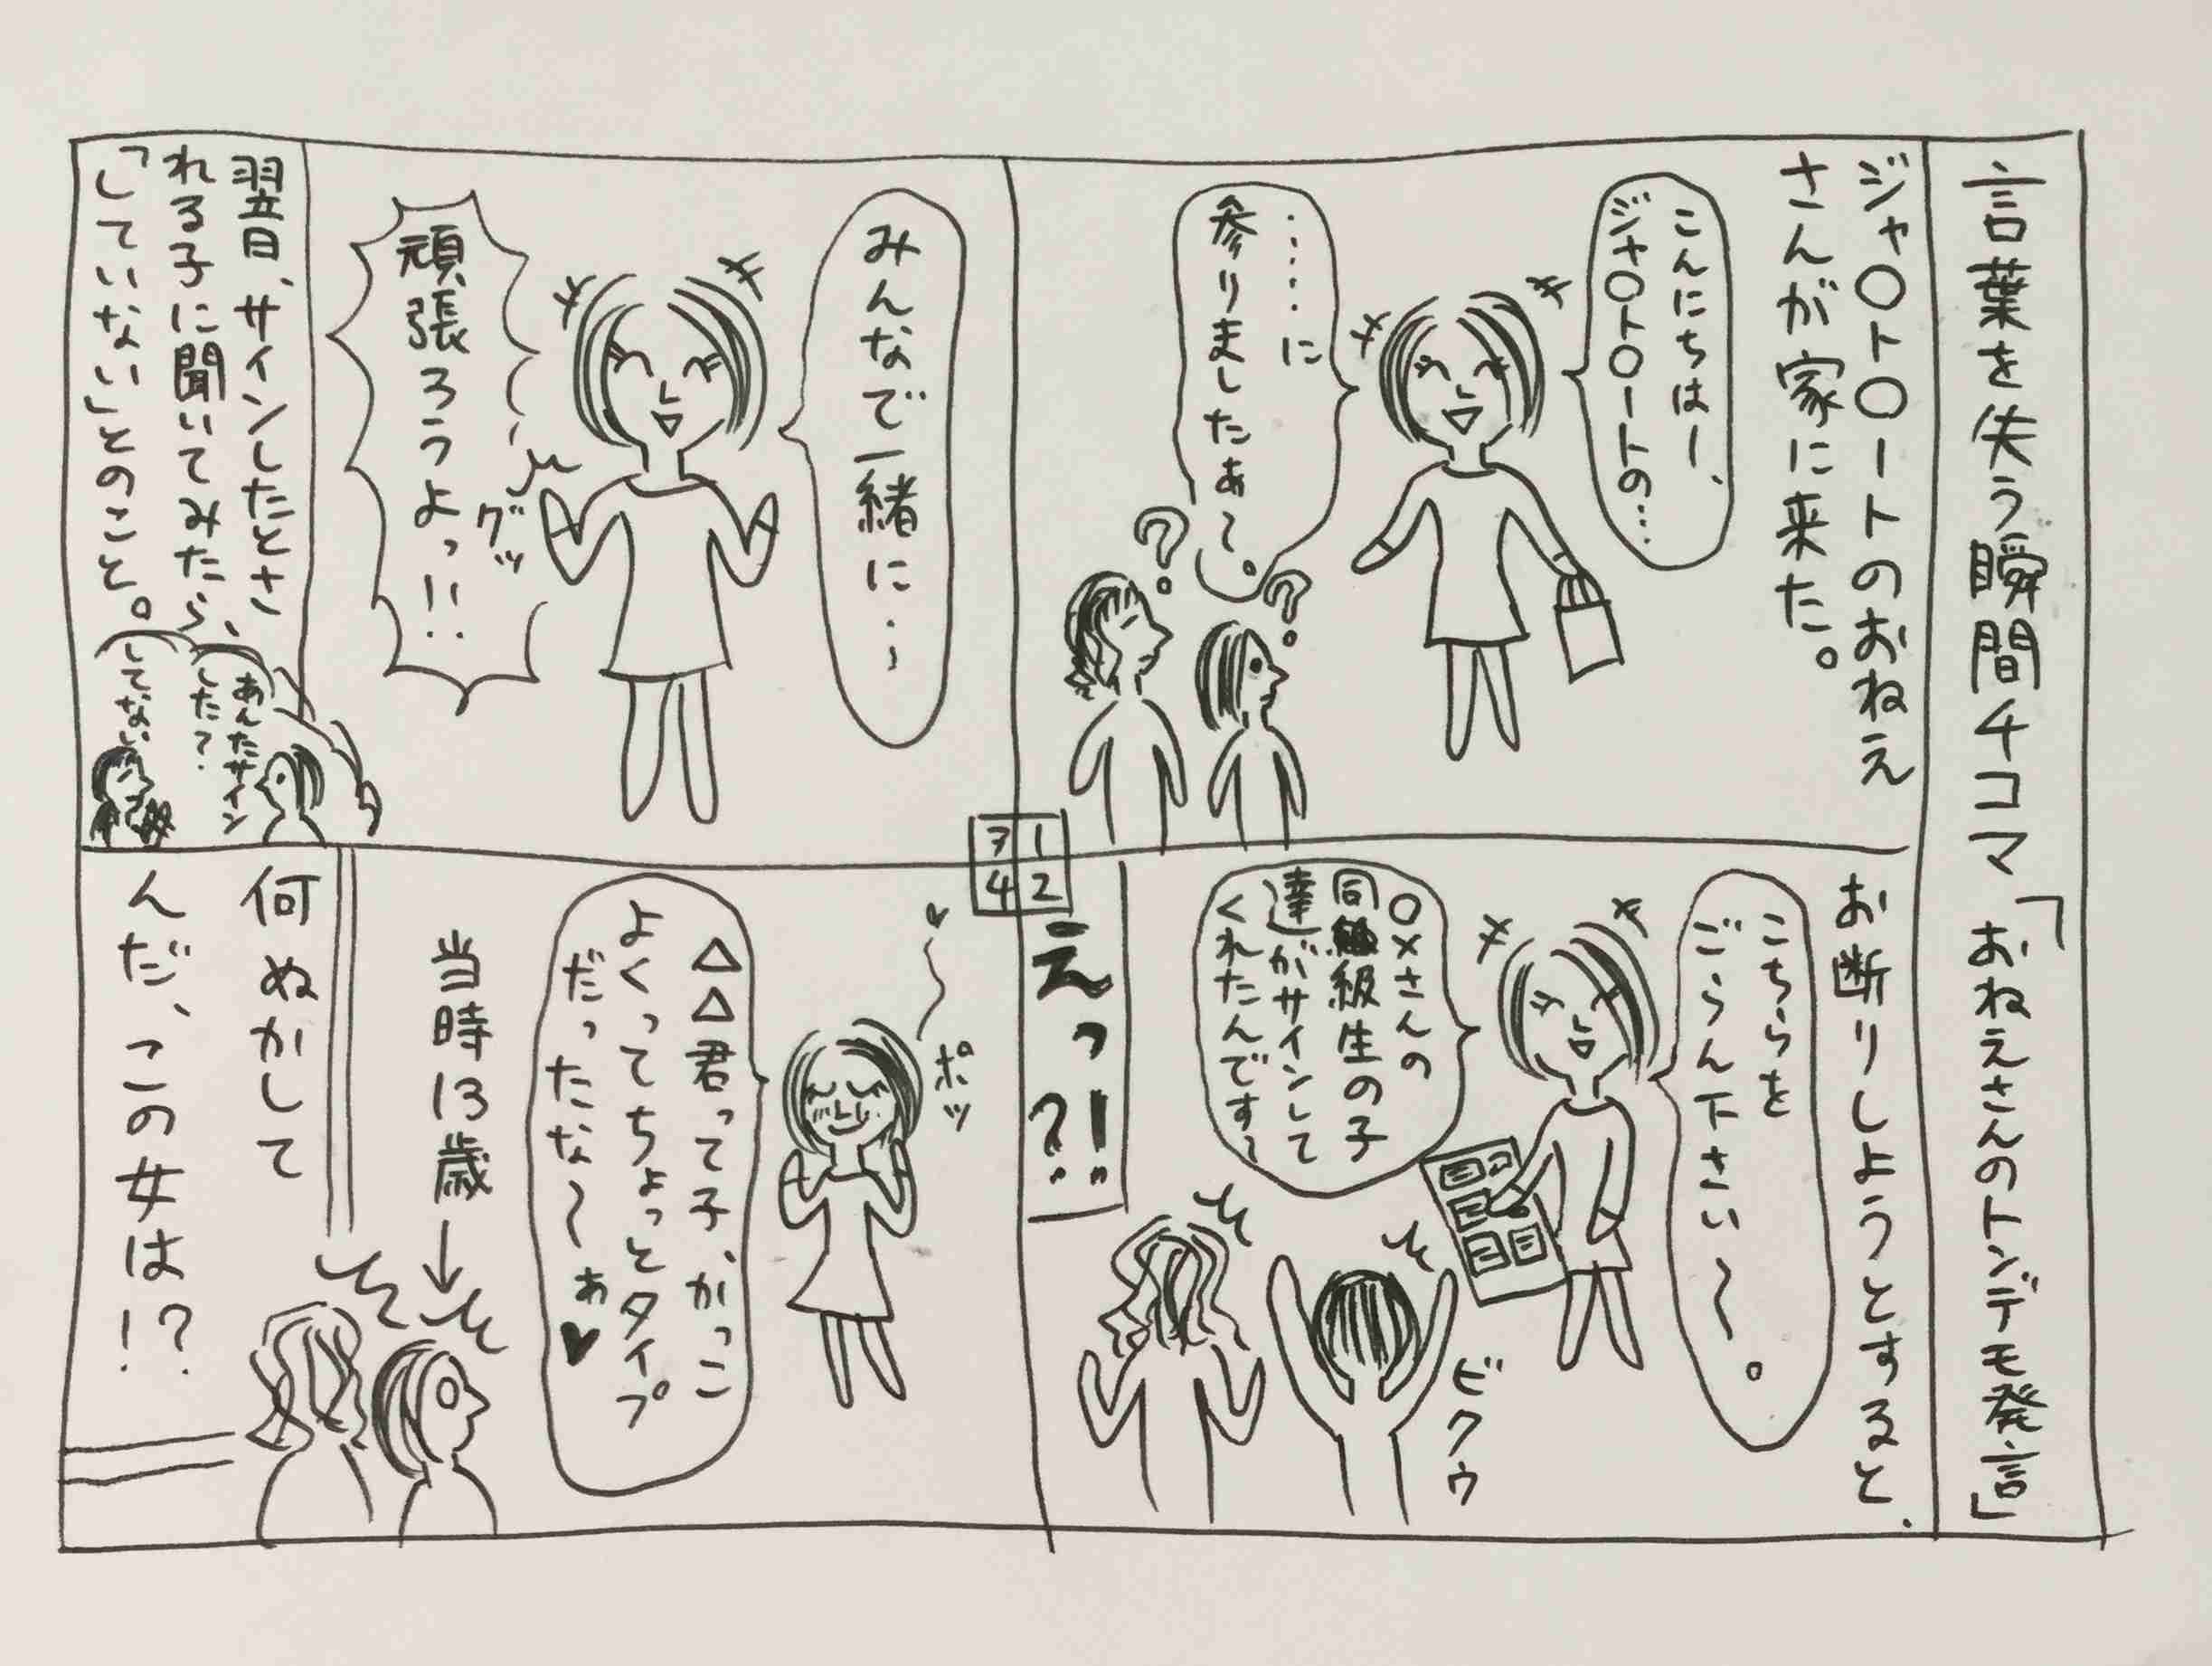 言葉を失う瞬間4コマ「おねえさんのトンデモ発言」
ジャ〇ト〇ートのおねえ
さんが家に来た。
こんにちはー、
ジャ〇ト〇ートの…
……に
参りましたぁ〜。
?
?
お断りしようとすると、
こちらを
ごらん下さい〜。
〇×さんの
同級生の子
達がサインして
くれたんです〜
ビクウ
えっ?!
みんなで一緒に…
グッ
頑張ろうよっ!!
翌日、サインしたとさ
れる子に聞いてみたら、
「していない」とのこと。
あんたサイン
した?
してない
ポッ
△△君って子、かっこ
よくってちょっとタイプ
だったな〜ぁ♥
当時13歳→
何ぬかして
んだ、この女は!?
3 1
4 2